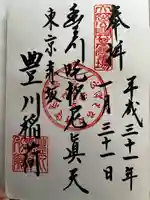 奉拝
平成三十一年
一月三十一日
豊川吒枳尼眞天
東京赤坂
豊川稲荷